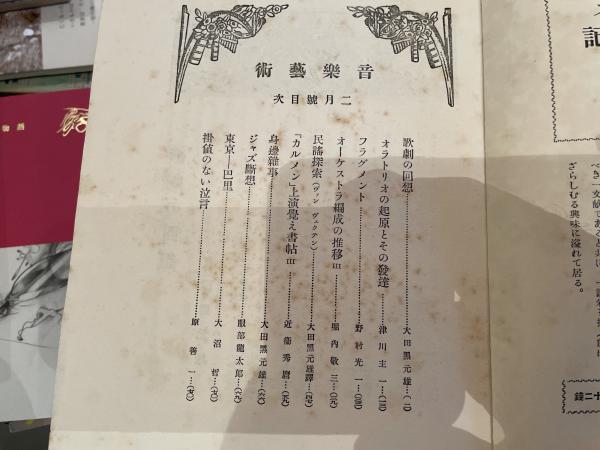 音樂藝術
二月號目次
歌劇の回想……大田黑元雄…(二)
オラトリオの起原とその發達……津川主一…(一三)
フラグメント……野村光一…(二四)
オーケストラ編成の推移 III……堀內敬三…(三元)
民謠探索(ヴァン ヴェクテン)……大田黑元雄譯…(四七)
「カルメン」上演覺え書帖 III……近衞秀麿…(五九)
身邊雜事……大田黑元雄…(六六)
ジャズ斷想……服部龍太郞…(六九)
東京―巴里……大沼哲…(七三)
掛値のない泣言……原善一…(七五)
記
べき
ざらしむる興味に溢れて居る。
十二錢